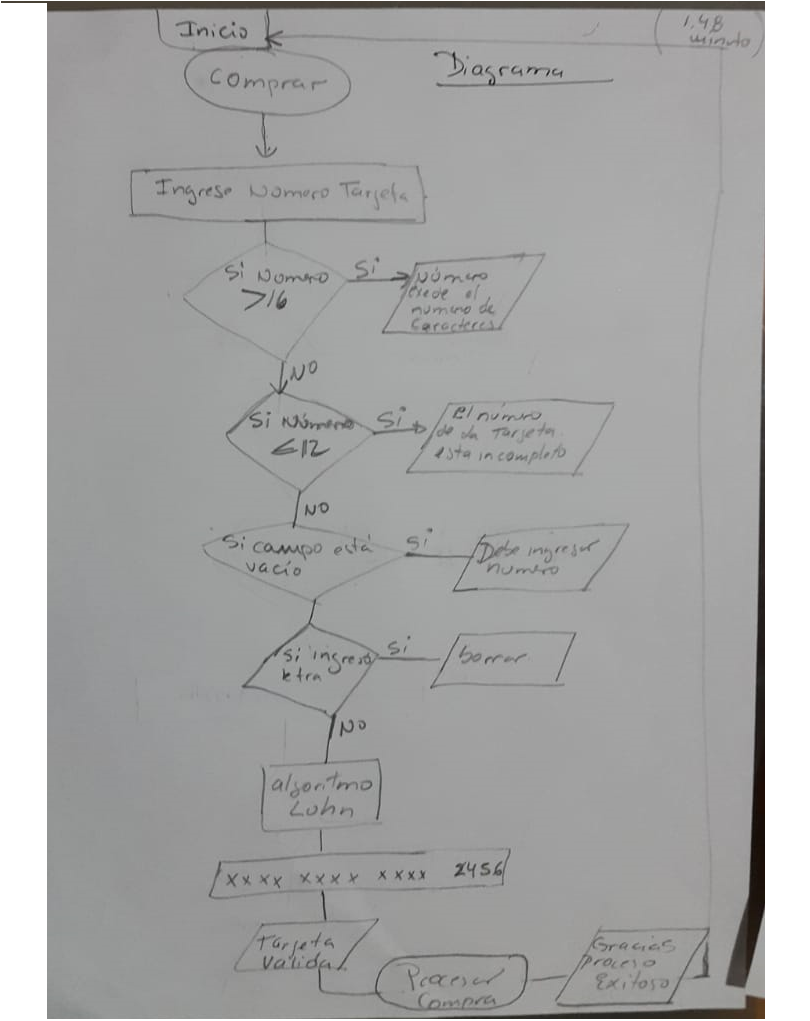 Inicio
1.48
minuto
Diagrama
Comprar
Ingrese Numero Tarjeta
Si Numero
>16
Si
Número
exede el
numero de
Caracteres
NO
Si Número
≤12
Si
El número
de da Tarjeta
esta incompleto
NO
Si campo está
vacío
Si
Debe ingresar
numero
Si ingresó
letra
Si
borrar
NO
algoritmo
Luhn
xxxx xxxx xxxx 2456
Tarjeta
Valida
Procesar
Compra
Gracias
proceso
Exitoso